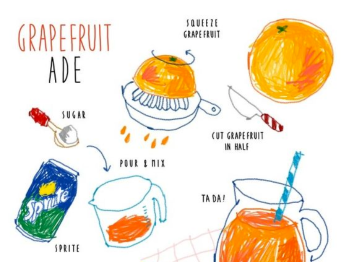 GRAPEFRUIT
ADE
SQUEEZE
GRAPEFRUIT
CUT GRAPEFRUIT
IN HALF
SUGAR
POUR & MIX
Sprite
SPRITE
TADA!